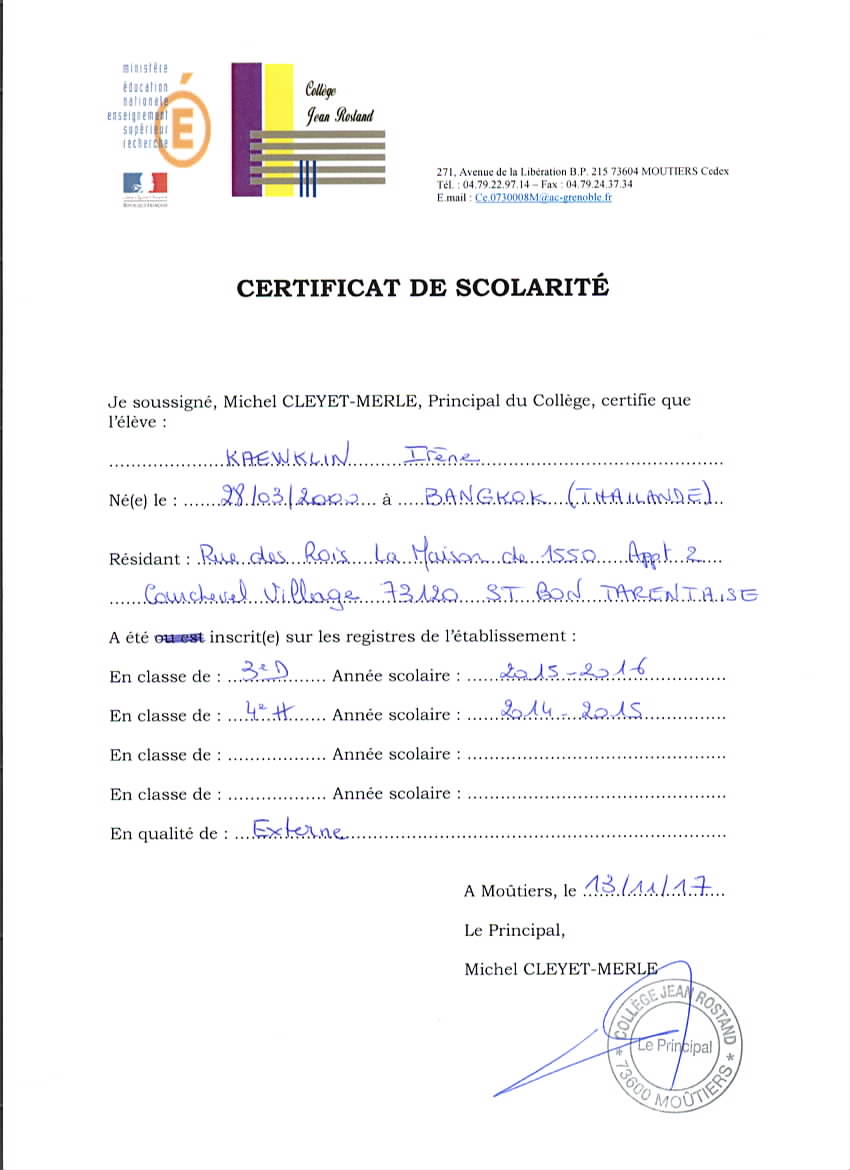 ministère
éducation
nationale
enseignement
supérieur
recherche
RÉPUBLIQUE FRANÇAISE
Collège
Jean Rostand
271, Avenue de la Libération B.P. 215 73604 MOUTIERS Cedex
Tél. : 04.79.22.97.14 – Fax : 04.79.24.37.34
E.mail : Ce.0730008M@ac-grenoble.fr
CERTIFICAT DE SCOLARITÉ
Je soussigné, Michel CLEYET-MERLE, Principal du Collège, certifie que
l'élève :
KAEWKLIN Irène
Né(e) le : 28/03/2000 à BANGKOK (THAILANDE)
Résidant : Rue des Rois La Maison de 1550 Appt 2
Courchevel Village 73120 ST BON TARENTAISE
A été ou est inscrit(e) sur les registres de l'établissement :
En classe de : 3e D Année scolaire : 2015-2016
En classe de : 4e H Année scolaire : 2014-2015
En classe de : .................. Année scolaire : ...............................................
En classe de : .................. Année scolaire : ...............................................
En qualité de : Externe
A Moûtiers, le 13/11/17
Le Principal,
Michel CLEYET-MERLE
* COLLÈGE JEAN ROSTAND *
Le Principal
73600 MOÛTIERS